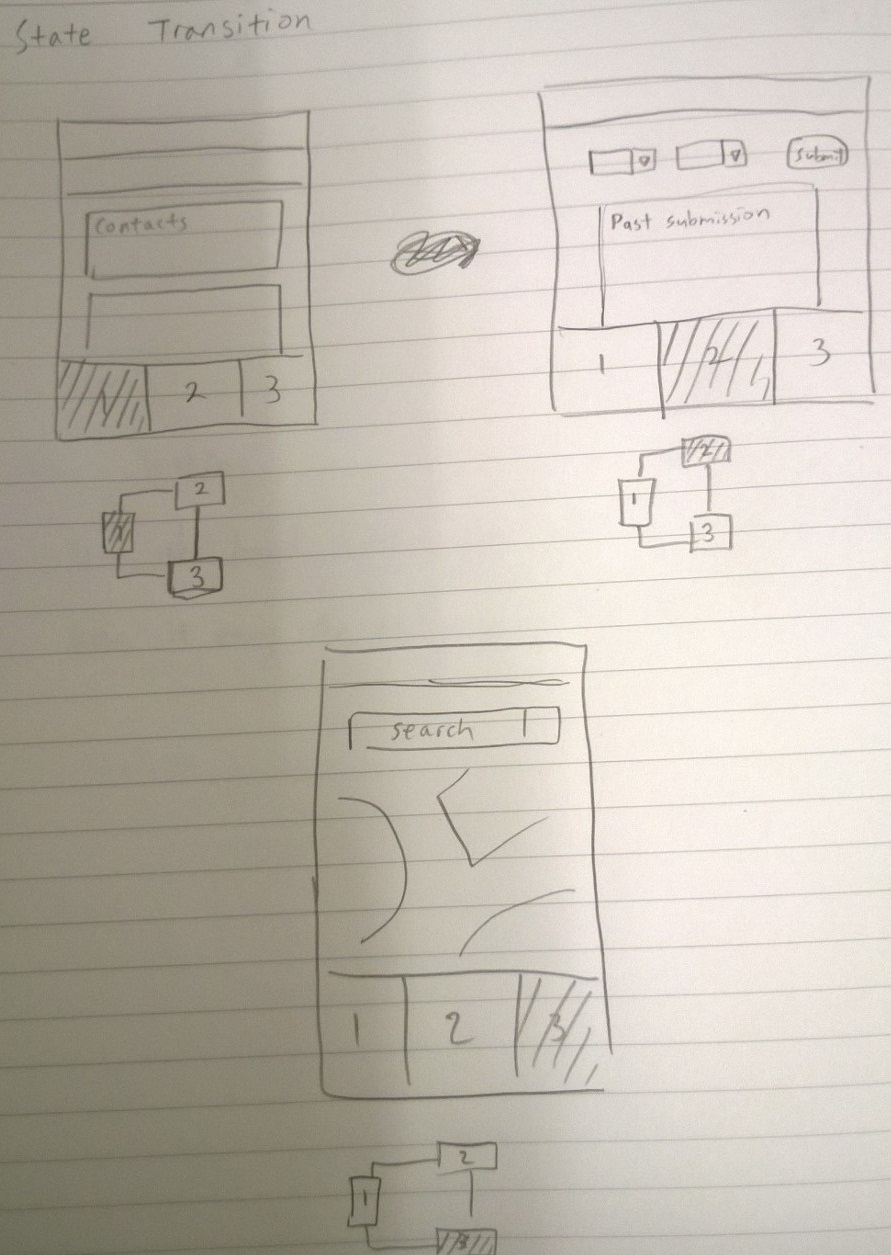 State Transition
Contacts
1 2 3
2
1
3
Submit
Past submission
1 2 3
2
1
3
search
1 2 3
2
1
3